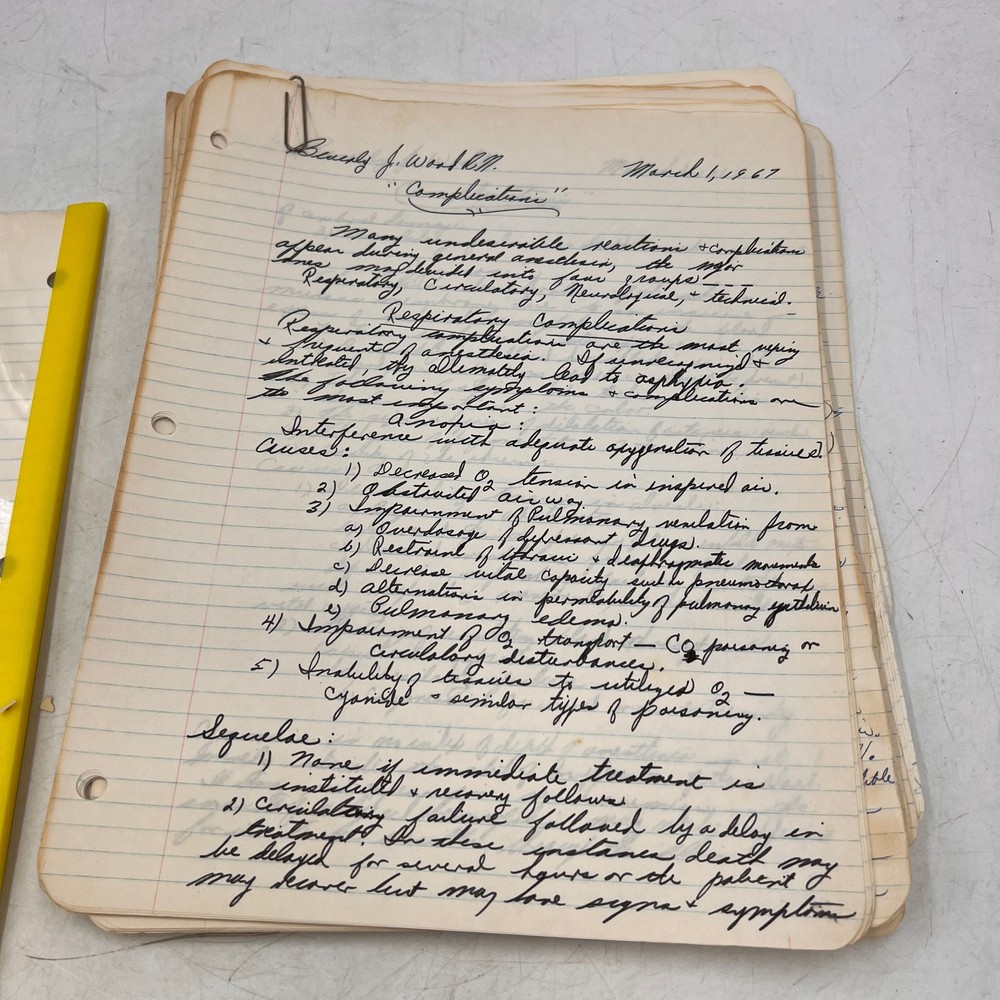 Beverly J. Wood R.N. March 1, 1967
"Complications"
Many undesirable reactions + complications
appear during general anesthesia, the major
ones may devided into four groups —
Respiratory, Circulatory, Neurological, + technical.
Respiratory Complications
Respiratory complications are the most
+ frequent of anesthesia. If unrecognized +
untreated, they ultimately lead to asphyxia.
The following symptoms + complications are
the most important:
Anoxia:
Interference with adequate oxygenation of tissues.
Causes:
1) Decreased O2 tension in inspired air.
2) Obstructed airway
3) Impairment of Pulmonary ventilation from
a) Overdosage of depressant drugs.
b) Restraint of thoracic + diaphragmatic movements
c) Decrease vital capacity such pneumothorax
d) alternations in permeability of pulmonary epithelium
e) Pulmonary edema.
4) Impairment of O2 transport — CO poisoning or
circulatory disturbances.
5) Inability of tissues to utilized O2 —
Cyanide + similar types of poisoning.
Sequelae:
1) None if immediate treatment is
instituted + recovery follows
2) Circulatory failure followed by a delay in
treatment. In these instances death may
be delayed for several hours or the patient
may recover but may have signs + symptoms